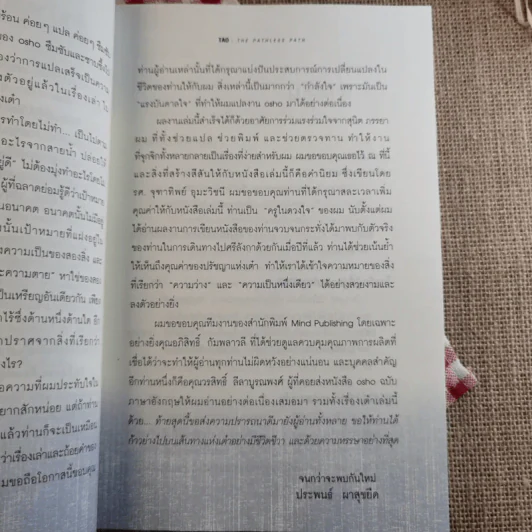 ร้อน ค่อยๆ แปล ค่อยๆ ซึมซับ
ของ osho ซึมซับและซาบซึ้ง
องว่าการแปลเสร็จเป็นความ
งตัวอยู่แล้วในเรื่องเต๋า
เต๋า
รทำโดยไม่ทำ... เป็นไปตาม
อะไรจากสายน้ำ ปล่อยให้
ยู่ดี" ไม่ต้องมุ่งทำอะไรโดยไม่
ผู้ที่ฉลาดย่อมรู้ดีว่าเป้าหมาย
ในอนาคต อนาคตนั้นไม่มีอยู่
งนั้นเป้าหมายที่แฝงอยู่ใน
ความเป็นของสองสิ่ง และ
ะความตาย" หาใช่ของสอง
เป็นเหรียญอันเดียวกัน เพียง
ไร้ซึ่งด้านหนึ่งด้านใด อีก
ปราศจากสิ่งที่เรียกว่า
งไร?
อความที่ผมประทับใจใน
ยากสักหน่อย แต่ถ้าท่าน
แล้วท่านก็จะเป็นเหมือน
ว่าเรื่องเล่าและถ้อยคำของ
มขอถือโอกาสนี้ขอบคุณ
TAO · THE PATHLESS PATH
ท่านผู้อ่านเหล่านั้นที่ได้กรุณาแบ่งปันประสบการณ์การเปลี่ยนแปลงใน
ชีวิตของท่านให้กับผม สิ่งเหล่านี้เป็นมากกว่า "กำลังใจ" เพราะมันเป็น
"แรงบันดาลใจ" ที่ทำให้ผมแปลงาน osho มาได้อย่างต่อเนื่อง
ผลงานเล่มนี้สำเร็จได้ก็ด้วยอาศัยการร่วมแรงร่วมใจจากสุนิด ภรรยา
ผม ที่ทั้งช่วยแปล ช่วยพิมพ์ และช่วยตรวจทาน ทำให้งาน
ที่จุกจิกทั้งหลายกลายเป็นเรื่องที่ง่ายสำหรับผม ผมขอขอบคุณเธอไว้ ณ ที่นี้
และสิ่งที่สร้างสีสันให้กับหนังสือเล่มนี้ก็คือคำนิยม ซึ่งเขียนโดย
รศ. จุฑาทิพย์ อุมะวิชนี ผมขอขอบคุณท่านที่ได้กรุณาสละเวลาเพิ่ม
คุณค่าให้กับหนังสือเล่มนี้ ท่านเป็น "ครูในดวงใจ" ของผม นับตั้งแต่ผม
ได้อ่านผลงานการเขียนหนังสือของท่านจวบจนกระทั่งได้มาพบกับตัวจริง
ของท่านในการเดินทางไปศรีลังกาด้วยกันเมื่อปีที่แล้ว ท่านได้ช่วยเน้นย้ำ
ให้เห็นถึงคุณค่าของปรัชญาแห่งเต๋า ทำให้เราได้เข้าใจความหมายของสิ่ง
ที่เรียกว่า "ความว่าง" และ "ความเป็นหนึ่งเดียว" ได้อย่างสวยงามและ
ลงตัวอย่างยิ่ง
ผมขอขอบคุณทีมงานของสำนักพิมพ์ Mind Publishing โดยเฉพาะ
อย่างยิ่งคุณอภิสิทธิ์ กัมพลาวลี ที่ได้ช่วยดูแลควบคุมคุณภาพการผลิตที่
เชื่อได้ว่าจะทำให้ผู้อ่านทุกท่านไม่ผิดหวังอย่างแน่นอน และบุคคลสำคัญ
อีกท่านหนึ่งก็คือคุณวรสิทธิ์ ลีลาบูรณพงศ์ ผู้ที่คอยส่งหนังสือ osho ฉบับ
ภาษาอังกฤษให้ผมอ่านอย่างต่อเนื่องเสมอมา รวมทั้งเรื่องเต๋าเล่มนี้
ด้วย... ท้ายสุดนี้ขอส่งความปรารถนาดีมายังผู้อ่านทั้งหลาย ขอให้ท่านได้
ก้าวย่างไปบนเส้นทางแห่งเต๋าอย่างมีชีวิตชีวา และด้วยความหรรษาอย่างที่สุด
จนกว่าจะพบกันใหม่
ประพนธ์ ผาสุขยืด